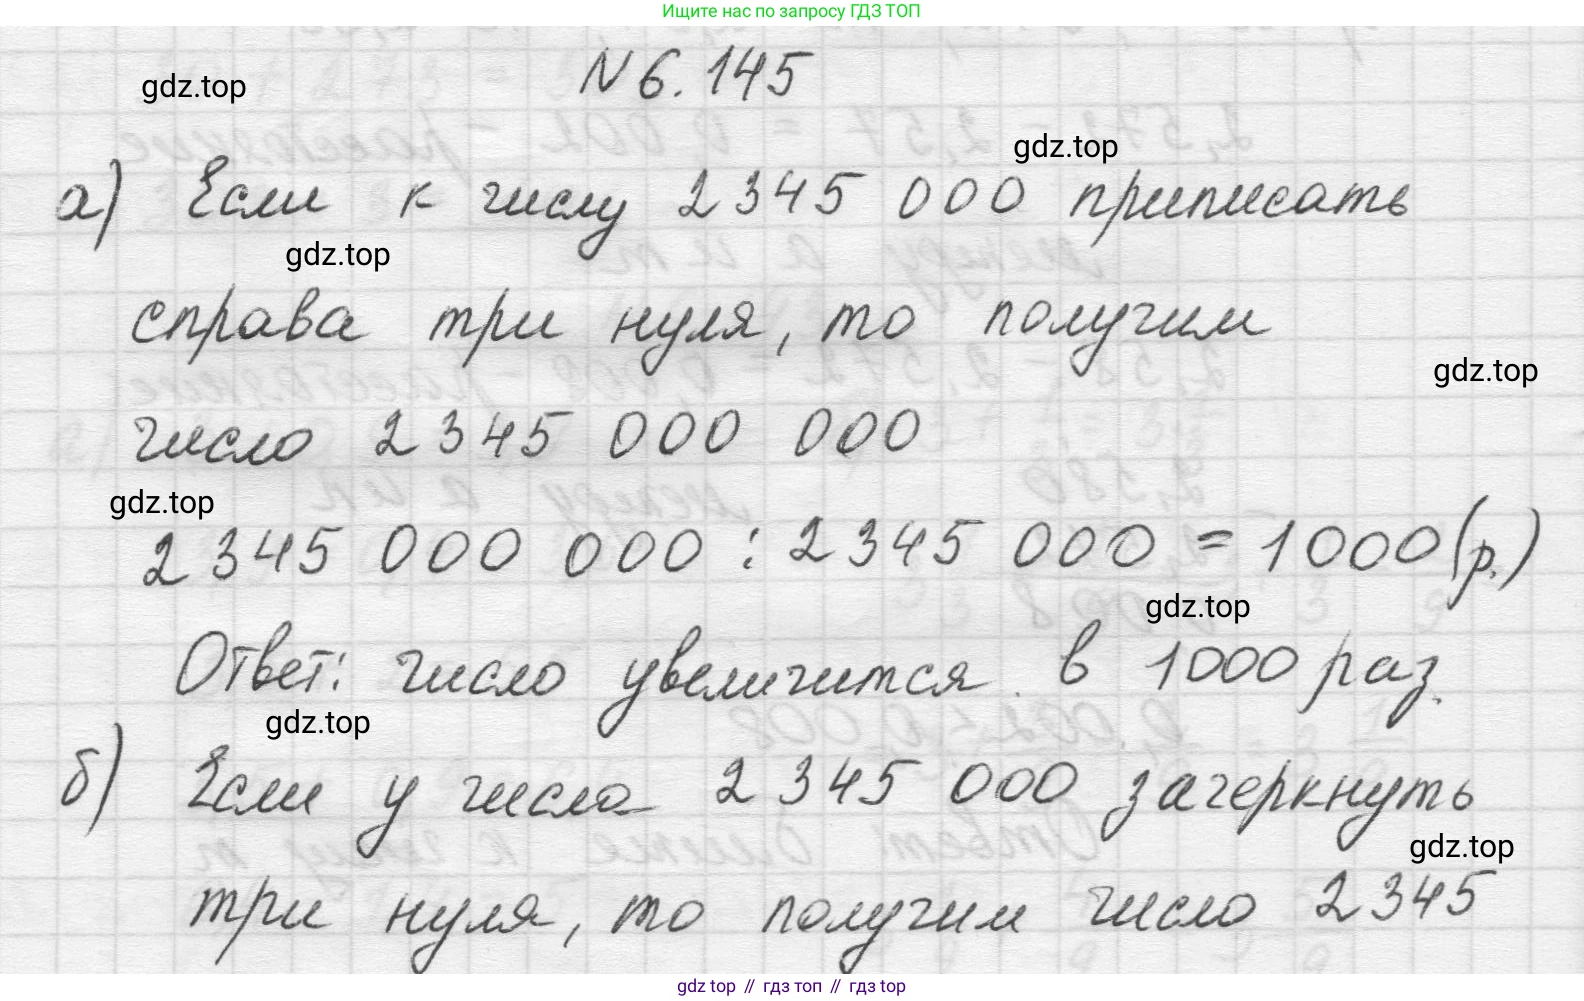 Ищите нас по запросу ГДЗ ТОП
N 6.145
gdz.top
gdz.top
а) Если к числу 2 345 000 приписать
gdz.top
справа три нуля, то получим
gdz.top
число 2 345 000 000
gdz.top
2 345 000 000 : 2 345 000 = 1000 (р.)
gdz.top
Ответ: число увеличится в 1000 раз.
gdz.top
б) Если у числа 2 345 000 зачеркнуть
gdz.top
три нуля, то получим число 2 345
gdz.top // гдз топ // гдз top